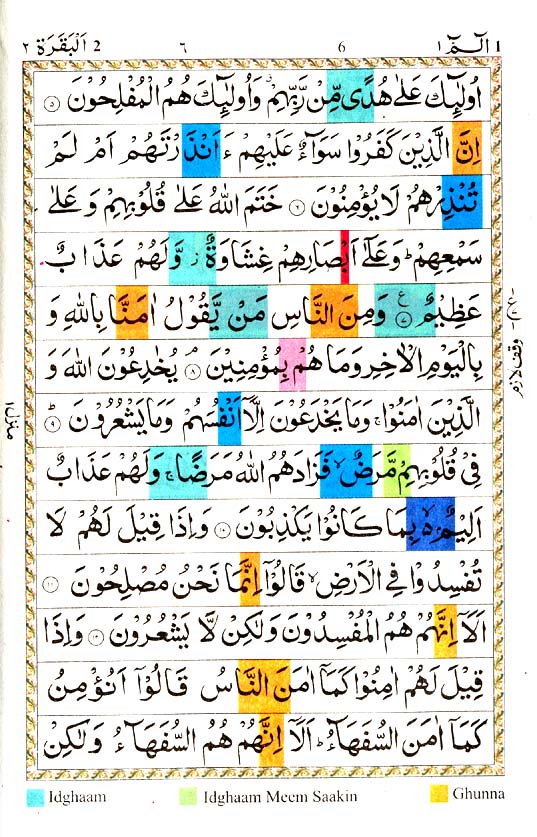 الٓمّٓ ١ 1 6 ٦ 2 اَلْبَقَرَة ٢
اُولٰٓئِكَ عَلٰى هُدًى مِّنْ رَّبِّهِمْ ۙ وَاُولٰٓئِكَ هُمُ الْمُفْلِحُوْنَ ۝٥
اِنَّ الَّذِيْنَ كَفَرُوْا سَوَآءٌ عَلَيْهِمْ ءَاَنْذَرْتَهُمْ اَمْ لَمْ
تُنْذِرْهُمْ لَا يُؤْمِنُوْنَ ۝٦ خَتَمَ اللّٰهُ عَلٰى قُلُوْبِهِمْ وَ عَلٰى
سَمْعِهِمْ ؕ وَعَلٰٓى اَبْصَارِهِمْ غِشَاوَةٌ ز وَّلَهُمْ عَذَابٌ
عَظِيْمٌ ۝٧ ع وَمِنَ النَّاسِ مَنْ يَّقُوْلُ اٰمَنَّا بِاللّٰهِ وَ
بِالْيَوْمِ الْاٰخِرِ وَمَا هُمْ بِمُؤْمِنِيْنَ ۝٨ يُخٰدِعُوْنَ اللّٰهَ وَ
الَّذِيْنَ اٰمَنُوْا ۚ وَمَا يَخْدَعُوْنَ اِلَّآ اَنْفُسَهُمْ وَمَا يَشْعُرُوْنَ ؕ ۝٩
فِيْ قُلُوْبِهِمْ مَّرَضٌ ۙ فَزَادَهُمُ اللّٰهُ مَرَضًا ۚ وَلَهُمْ عَذَابٌ
اَلِيْمٌۢ ۙ بِمَا كَانُوْا يَكْذِبُوْنَ ۝١٠ وَاِذَا قِيْلَ لَهُمْ لَا
تُفْسِدُوْا فِى الْاَرْضِ ۙ قَالُوْٓا اِنَّمَا نَحْنُ مُصْلِحُوْنَ ۝١١
اَلَآ اِنَّهُمْ هُمُ الْمُفْسِدُوْنَ وَلٰكِنْ لَّا يَشْعُرُوْنَ ۝١٢ وَاِذَا
قِيْلَ لَهُمْ اٰمِنُوْا كَمَآ اٰمَنَ النَّاسُ قَالُوْٓا اَنُؤْمِنُ
كَمَآ اٰمَنَ السُّفَهَآءُ ؕ اَلَآ اِنَّهُمْ هُمُ السُّفَهَآءُ وَلٰكِنْ
وقف لازم
منزل ١
Idghaam Idghaam Meem Saakin Ghunna